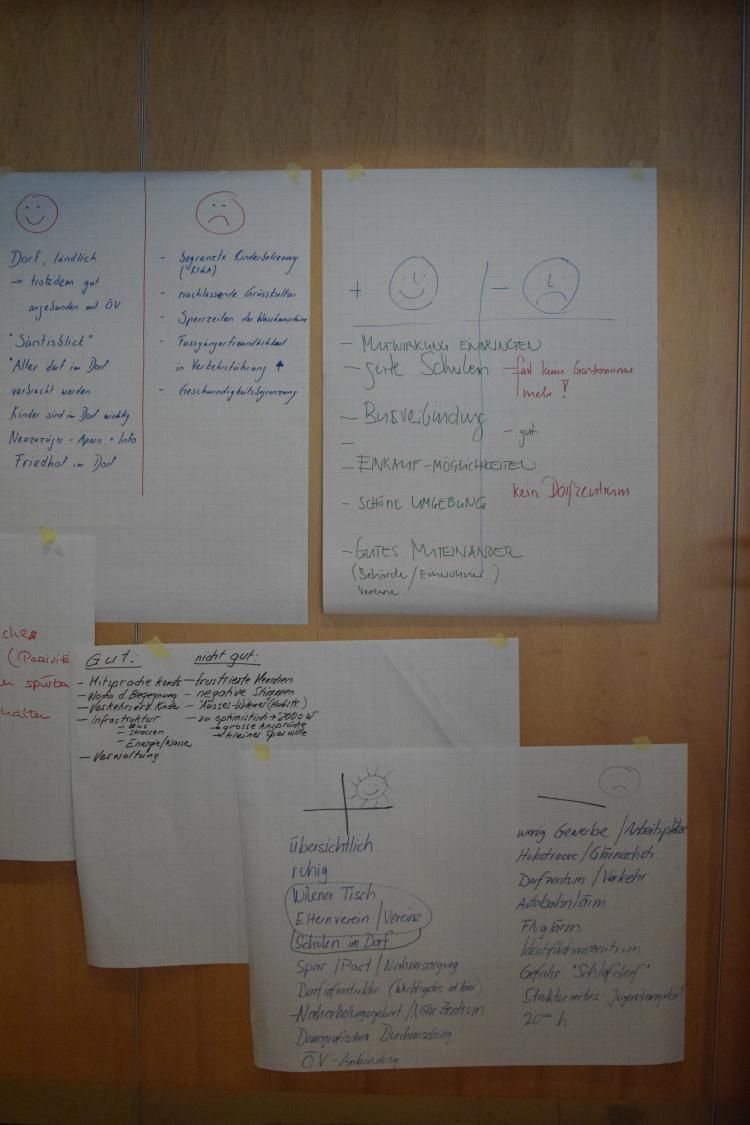 Dorf, ländlich
→ trotzdem gut
angebunden mit ÖV
"Säntisblick"
"Alter darf im Dorf
verbracht werden
Kinder sind im Dorf wichtig
Neuzuzüger - Apero + Info
Friedhof im Dorf
- begrenzte Kinderbetreuung
- nachlassende Grüsskultur
- Sperrzeiten der Waschmaschine
- Fussgängerfreundlichkeit
in Verkehrsführung
- Geschwindigkeitsbegrenzung
+
- MITWIRKUNG EINBRINGEN
- gute Schulen
- BUSVERBINDUNG
-
- EINKAUF-MÖGLICHKEITEN
- SCHÖNE UMGEBUNG
- GUTES MITEINANDER
(Behörde/Einwohner)
Vereine
-
- fast keine Gastronomie
mehr!
- gut
kein Dorfzentrum
(Passivität
halten
Gut:
- Mitsprache
- Woche d. Begegnung
- Infrastruktur
- Bus
- Strassen
- Energie/Wasser
- Verwaltung
nicht gut:
- frustrierte Menschen
- negative Stimmen
- zu optimistisch → "2000 W"
→ grosse Ansprüche
→ kleiner Sparwille
übersichtlich
ruhig
Wilener Tisch
Elternverein/Vereine
Schulen im Dorf
Spar/Post/Nahversorgung
Dorfinfrastruktur
- Naherholungsgebiet/Nähe Zentrum
Demografischen Durchmischung
ÖV-Anbindung
wenig Gewerbe/Arbeitsplätze
Hubstrasse/Glärnischstr.
Dorfzentrum/Verkehr
Autobahnlärm
Fluglärm
Identifikationszentrum
Gefahr "Schlafdorf"
Strukturiertes Jugendangebot